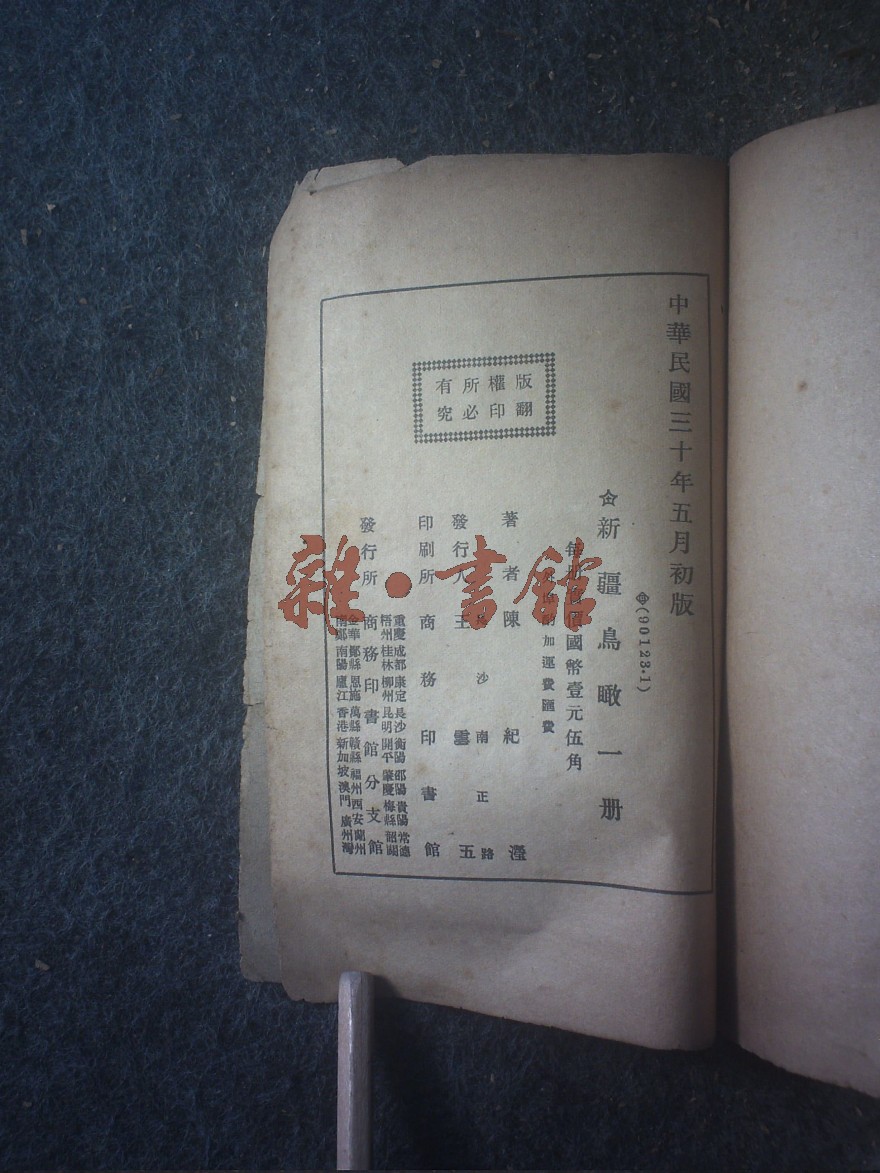 中華民國三十年五月初版
(90123·1)
新疆鳥瞰一册
國幣壹元伍角
加運費匯費
版權所有
翻印必究
著者 陳紀瀅
沙南正路
發行人 王雲五
印刷所 商務印書館
發行所 商務印書館分支館
重慶 成都 康定 長沙 衡陽 邵陽 貴陽 常德
梧州 桂林 柳州 昆明 開平 肇慶 梅縣 韶關
金華 鄞縣 恩施 萬縣 贛縣 福州 西安 蘭州
南鄭 南陽 廬江 香港 新加坡 澳門 廣州灣
雜·書館